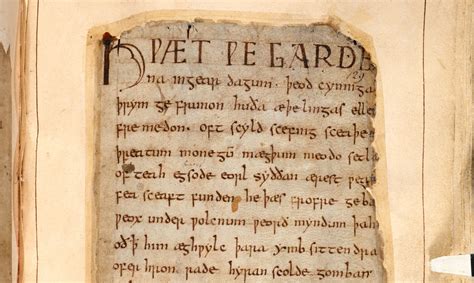 HǷÆT ǷE GARDE
na in gear dagum. þeod cyninga
þrym ge frunon huða æþelingas elle
fre medon. oft scyld scefing sceaþe
þreatum monegū mægþum meodo setl
of teah egsode eorl syððan ærest ƿe
fea sceaft funden he þæs frofre geba
ƿeox under ƿolcnum ƿeorð myndum þah
oð ꝥ him æghƿylc þara ymb sittendra
ofer hron rade hyran scolde gomban